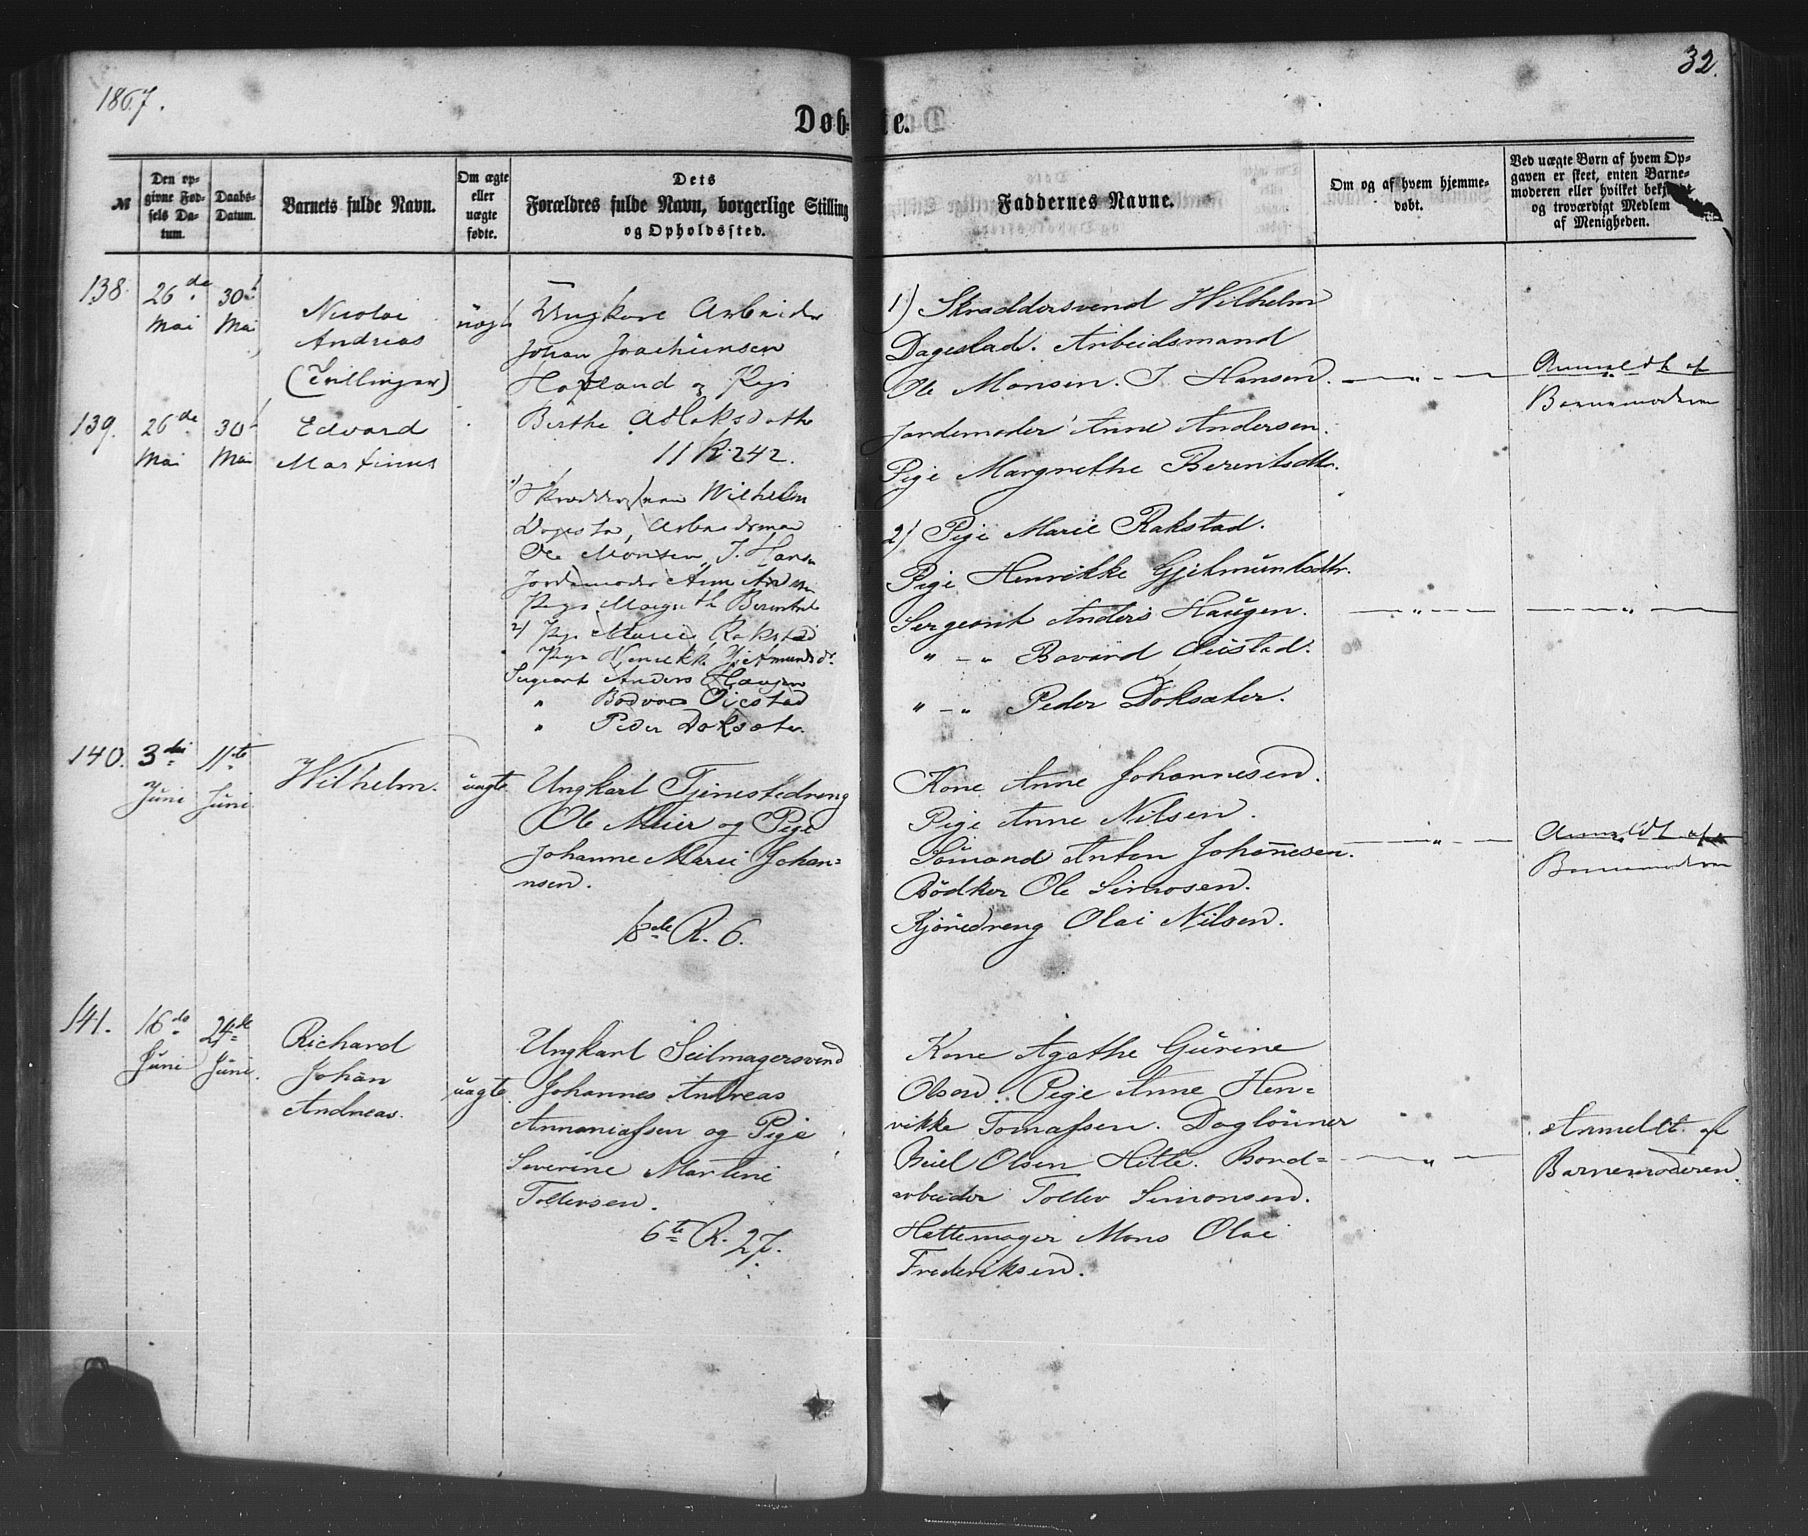 1867.
32.
Døb-
te.
№
Den op-
givne Fød-
sels Da-
tum.
Daabs-
Datum.
Barnets fulde Navn.
Om ægte
eller
uægte
fødte.
Dets
Forældres fulde Navn, borgerlige Stilling
og Opholdssted.
Faddernes Navne.
Om og af hvem hjemme-
døbt.
Ved uægte Børn af hvem Op-
gaven er skeet, enten Barne-
moderen eller hvilket bekjendt
og troværdigt Medlem
af Menigheden.
138.
26de
Mai
30te
Mai
Nicolai
Andreas
(Tvillinger)
uægte
Ungkarl Arbeider
Johan Joachimsen
Hopland og Pige
Berthe Aslaksdatter
11 R. 242.
139.
26de
Mai
30te
Mai
Edvard
Martinus
1) Skræddersvend Wilhelm
Dagestad, Arbeidsmand
Ole Monsen, J. Hansen
Jordemoder Anne Andersen
Pige Margrethe Berentsd
2) Pige Marie Rakstad
Pige Henrikke Gjetmundsdr.
Sergeant Anders Haugen
" Bodvar Oiestad
" Peder Doksæter.
1) Skræddersvend Wilhelm
Dagestad. Arbeidsmand
Ole Monsen. J. Hansen.
Jordemoder Anne Andersen.
Pige Margrethe Berentsdtr.
2) Pige Marie Rakstad.
Pige Henrikke Gjetmundsdtr.
Sergeant Anders Haugen.
" - " Bovard Öiestad.
" - " Peder Doksæter.
— " —
Anmeldt af
Barnemoderen
— " —
— " —
140.
3die
Juni
11te
Juni
Wilhelm.
uægte
Ungkarl Tjenestedreng
Ole Meier og Pige
Johanne Marie Johan-
nsen.
18de R. 6.
Kone Anne Johannesen.
Pige Anne Nilsen.
Sömand Anton Johanesen.
Bödker Ole Simosen.
Kjöredreng Olai Nilsen.
— " —
Anmeldt af
Barnemoderen
141.
16de
Juni
24de
Juni.
Richard
Johan
Andreas.
uægte.
Ungkarl Seilmagersvend
Johannes Andreas
Annaniassen og Pige
Severine Martine
Tollersen.
6te R. 27.
Kone Agathe Gurine
Olsen. Pige Anne Hen-
rikke Tomassen. Daglönner
Beiel Olsen Hille. Bord-
arbeider Tollev Simonsen.
Hattemager Mons Olai
Frederiksen.
— " —
Anmeldt af
Barnemoderen.